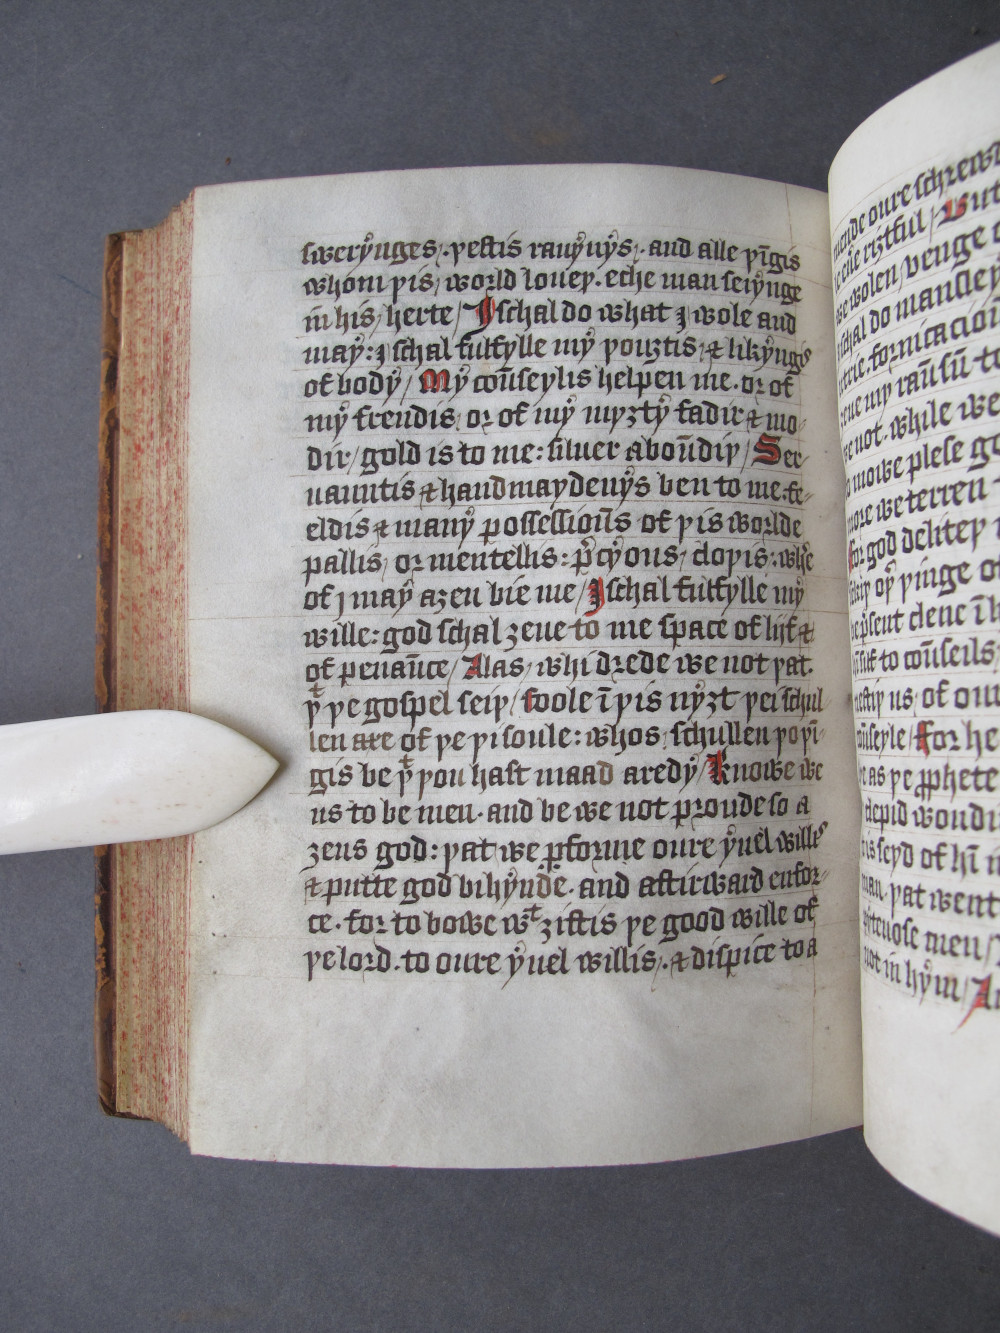 sweryngis / þeftis rauynys / and alle þīgis
whom þis world loueþ . eche man seiynge
in his herte / I schal do what I wole and
may : I schal fulfylle my þouȝtis / & likyngis
of body / My coūseylis helpen me . or of
my frendis . or of my myȝty fadir & mo-
dir / gold is to me : siluer aboūdiþ / Ser-
uauntis & handmaydenys ben to me . fe-
eldis & many possessioūs of þis worlde
pallis / or mentellis : p̄cyous / cloþis : whe
of I may aȝen bie me / I schal fulfylle my
wille : god schal ȝeue to me space of lijf &
of penaūce / Alas / whi drede we not þat .
þͭ þe gospel seiþ / foole ī þis nyȝt þei schul-
len axe of þe þi soule : whos / schullen þo þī-
gis be þͭ þou hast maad aredy / Knowe we
us to be men . and be we not proude so a
ȝens god : þat we ꝑforme oure yuel willis
& putte god bihynde . and aftirward enfor-
ce . for to bowe wͭ ȝiftis þe good wille of
þe lord . to oure yuel willis / . & dispice to a
mende oure schrewi
riȝtful / But
we wolen / venge
schal do mansley
fornicacioū
my raūsū to
not . while we
mowe plese go
more we terren
for god deliteþ
oþ þinge of
be p̄sent clene ī h
to coūseils
us / of our
coūseyle / For he
as þe ꝓphete
clepid woundi
is seyd of hī
man . þat went
men /
not in hym / An